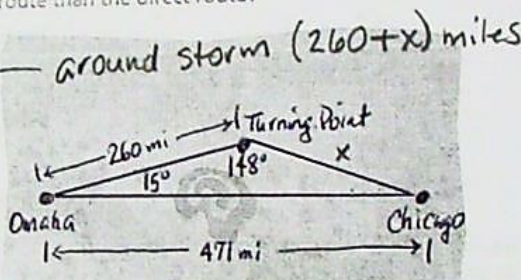 route than the direct route.
— around storm (260+x) miles
260 mi
Turning Point
148°
x
15°
Omaha
Chicago
471 mi